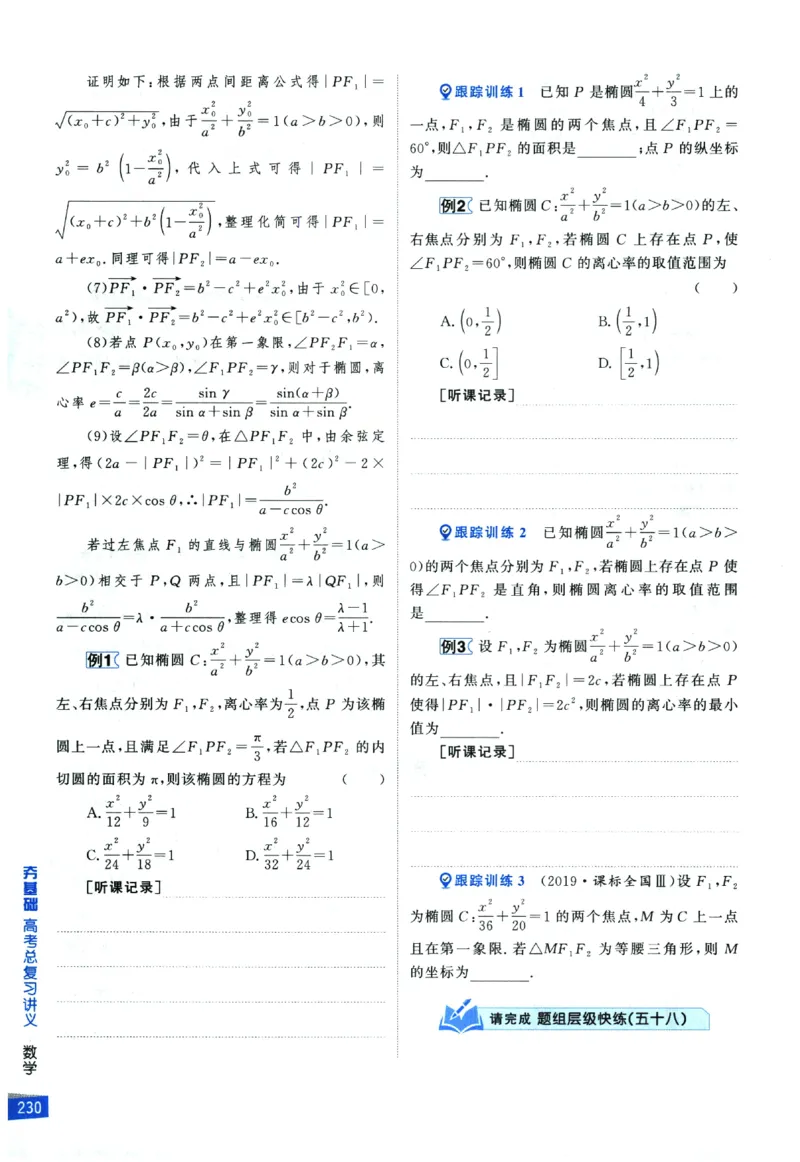 证明如下:根据两点间距离公式得|PF₁|=
√((x₀+c)²+y₀²),由于x₀²/a²+y₀²/b²=1(a>b>0),则
y₀²=b²(1-x₀²/a²),代入上式可得|PF₁|=
√((x₀+c)²+b²(1-x₀²/a²)),整理化简可得|PF₁|=
a+ex₀.同理可得|PF₂|=a-ex₀.
(7)PF₁→·PF₂→=b²-c²+e²x₀²,由于x₀²∈[0,
a²),故PF₁→·PF₂→=b²-c²+e²x₀²∈[b²-c²,b²).
(8)若点P(x₀,y₀)在第一象限,∠PF₂F₁=α,
∠PF₁F₂=β(α>β),∠F₁PF₂=γ,则对于椭圆,离
心率e=c/a=2c/2a=sin γ/(sin α+sin β)=sin(α+β)/(sin α+sin β).
(9)设∠PF₁F₂=θ,在△PF₁F₂中,由余弦定
理,得(2a-|PF₁|)²=|PF₁|²+(2c)²-2×
|PF₁|×2c×cos θ,∴|PF₁|=b²/(a-ccos θ).
若过左焦点F₁的直线与椭圆x²/a²+y²/b²=1(a>
b>0)相交于P,Q两点,且|PF₁|=λ|QF₁|,则
b²/(a-ccos θ)=λ·b²/(a+ccos θ),整理得ecos θ=(λ-1)/(λ+1).
例1 已知椭圆C:x²/a²+y²/b²=1(a>b>0),其
左、右焦点分别为F₁,F₂,离心率为1/2,点P为该椭
圆上一点,且满足∠F₁PF₂=π/3,若△F₁PF₂的内
切圆的面积为π,则该椭圆的方程为 ( )
A.x²/12+y²/9=1 B.x²/16+y²/12=1
C.x²/24+y²/18=1 D.x²/32+y²/24=1
[听课记录]
跟踪训练1 已知P是椭圆x²/4+y²/3=1上的
一点,F₁,F₂是椭圆的两个焦点,且∠F₁PF₂=
60°,则△F₁PF₂的面积是______;点P的纵坐标
为______.
例2 已知椭圆C:x²/a²+y²/b²=1(a>b>0)的左、
右焦点分别为F₁,F₂,若椭圆C上存在点P,使
∠F₁PF₂=60°,则椭圆C的离心率的取值范围为
( )
A.(0,1/2) B.(1/2,1)
C.(0,1/2] D.[1/2,1)
[听课记录]
跟踪训练2 已知椭圆x²/a²+y²/b²=1(a>b>
0)的两个焦点分别为F₁,F₂,若椭圆上存在点P使
得∠F₁PF₂是直角,则椭圆离心率的取值范围
是______.
例3 设F₁,F₂为椭圆x²/a²+y²/b²=1(a>b>0)
的左、右焦点,且|F₁F₂|=2c,若椭圆上存在点P
使得|PF₁|·|PF₂|=2c²,则椭圆的离心率的最小
值为______.
[听课记录]
跟踪训练3 (2019·课标全国Ⅲ)设F₁,F₂
为椭圆C:x²/36+y²/20=1的两个焦点,M为C上一点
且在第一象限.若△MF₁F₂为等腰三角形,则M
的坐标为______.
请完成 题组层级快练(五十八)
夯基础 高考总复习讲义 数学
230